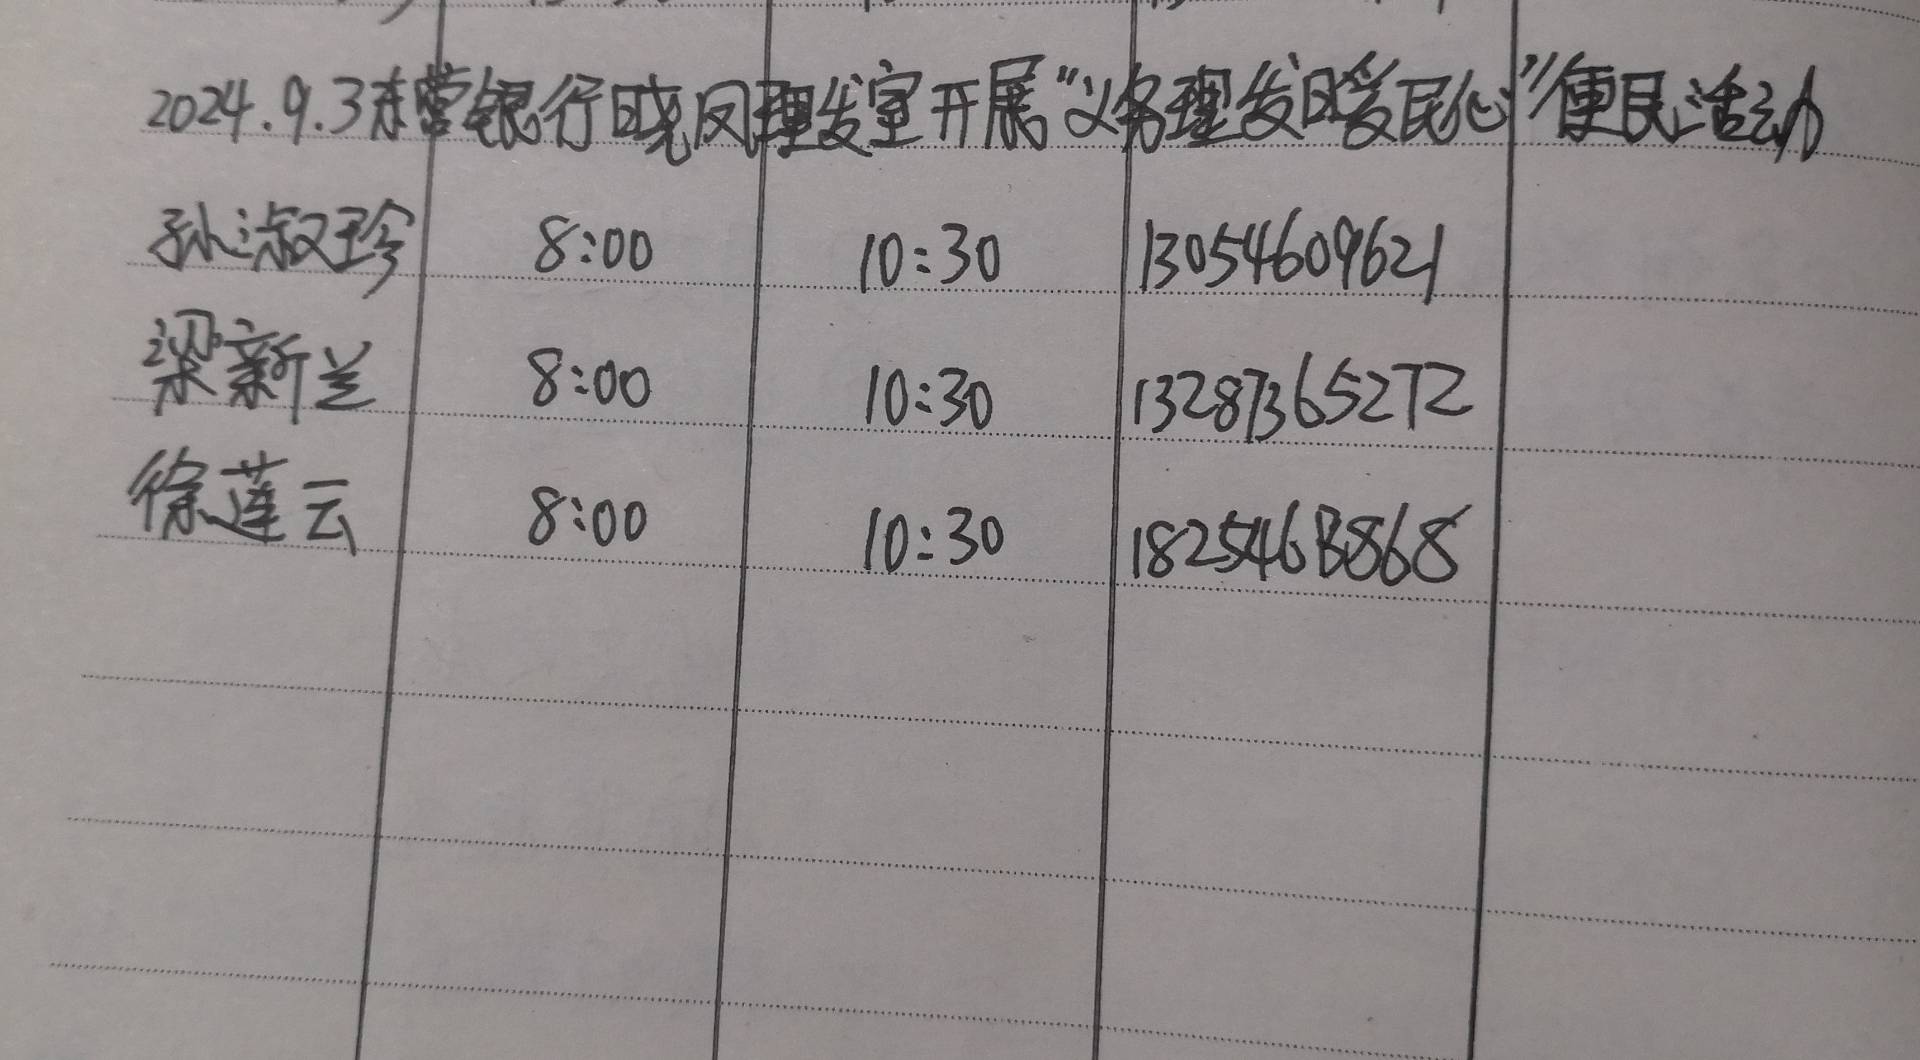 2024.9.3东营银行晓凤理发室开展“义务理发暖民心”便民活动
孙淑珍 8:00 10:30 13054609621
梁新兰 8:00 10:30 13287365272
徐莲云 8:00 10:30